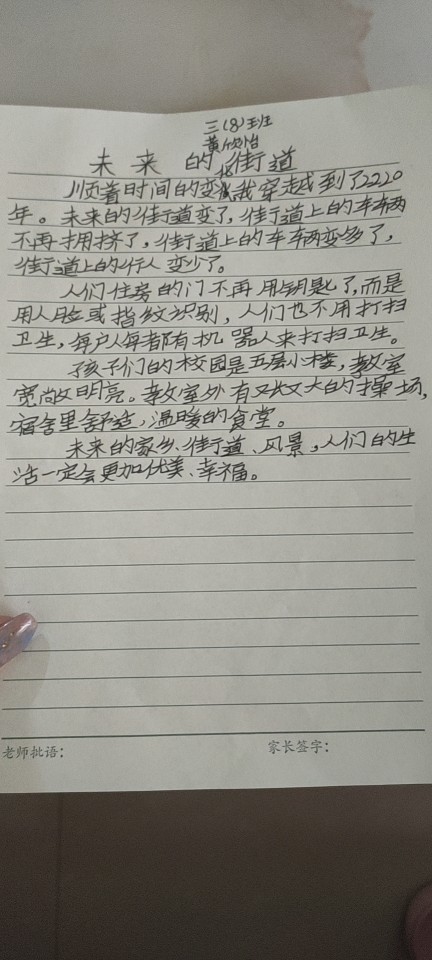 三(8)班
黄欣怡
未来的街道
顺着时间的变化我穿越到了2220
年。未来的街道变了,街道上的车辆
不再拥挤了,街道上的车辆变多了,
街道上的行人变少了。
人们住房的门不再用钥匙了,而是
用人脸或指纹识别,人们也不用打扫
卫生,每户人每都有机器人来打扫卫生。
孩子们的校园是五层小楼,教室
宽敞明亮。教室外有又长又大的操场,
宿舍里舒适、温暖的食堂。
未来的家乡、街道、风景,人们的生
活一定会更加优美、幸福。
老师批语:
家长签字: